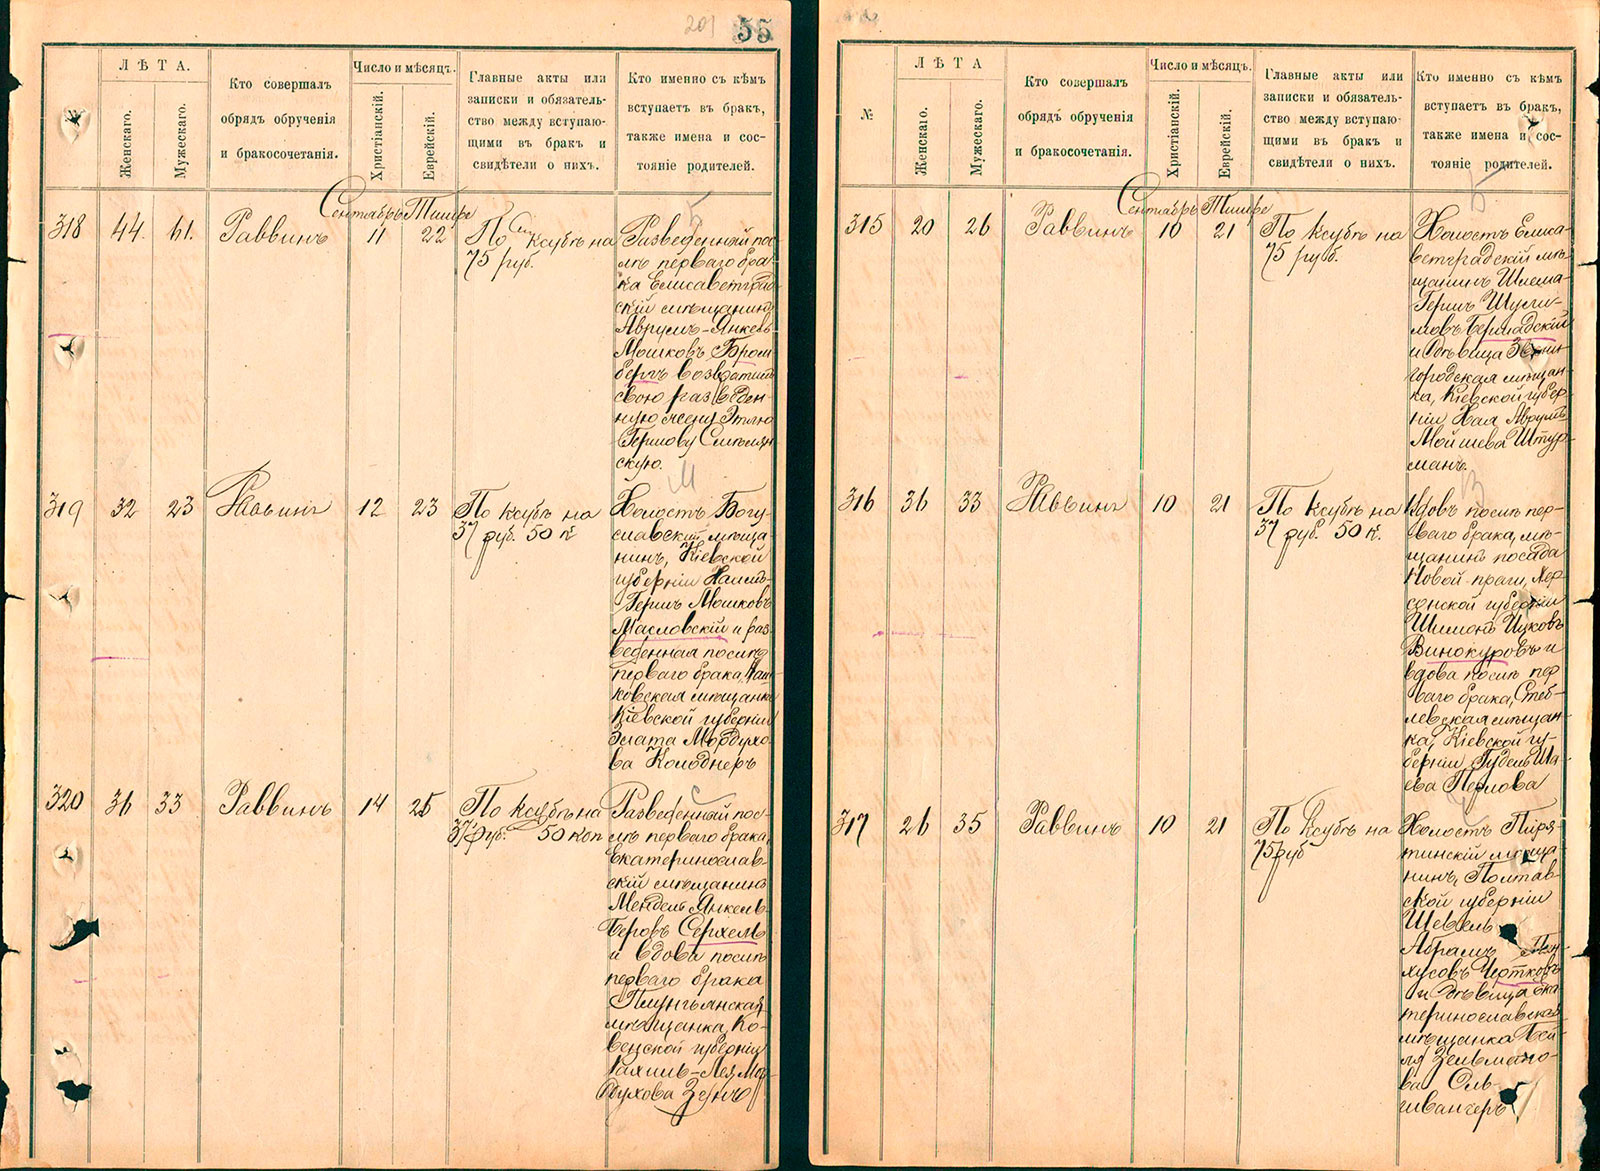 201 55
ЛѢТА.
Женскаго.
Мужескаго.
Кто совершалъ
обрядъ обрученія
и бракосочетанія.
Число и мѣсяцъ.
Христіанскій.
Еврейскій.
Главные акты или
записки и обязатель-
ство между вступаю-
щими въ бракъ и
свидѣтели о нихъ.
Кто именно съ кѣмъ
вступаетъ въ бракъ,
также имена и сос-
тояніе родителей.
Сентябрь Тишре
318 44. 61. Раввинъ 11 22
По ксубѣ на
75 руб.
Б
Разведенный пос-
лѣ перваго бра-
ка Елисаветград-
скій мѣщанинъ
Аврумъ-Янкель
Мошковъ Бром-
бергъ возвратилъ
свою разведен-
ную жену Этлю
Гершову Смѣлян-
скую.
319 32 23 Раввинъ 12 23
По ксубѣ на
37 руб. 50 к.
М
Холостъ Богу-
славскій мѣща-
нинъ, Кіевской
губерніи Хаимъ-
Гершъ Мошковъ
Масловскій и раз-
веденная послѣ
перваго брака,
ковская мѣщанка
Кіевской губерніи
Злата Мордухо-
ва Колоднеръ
320 36 33 Раввинъ 14 25
По ксубѣ на
37 руб. 50 коп
С
Разведенный пос-
лѣ перваго брака,
Екатеринослав-
скій мѣщанинъ
Мендель Янкель-
Беровъ Серхель
и вдова послѣ
перваго брака
Плунгянская
мѣщанка, Ко-
венской губерніи
Рахиль-Лея Мор-
духова Зунъ
№
ЛѢТА
Женскаго.
Мужескаго.
Кто совершалъ
обрядъ обрученія
и бракосочетанія.
Число и мѣсяцъ.
Христіанскій.
Еврейскій.
Главные акты или
записки и обязатель-
ство между вступаю-
щими въ бракъ и
свидѣтели о нихъ.
Кто именно съ кѣмъ
вступаетъ въ бракъ,
также имена и сос-
тояніе родителей.
Сентябрь Тишре
315 20 26 Раввинъ 10 21
По ксубѣ на
75 руб.
Б
Холостъ Елиса-
ветградскій мѣ-
щанинъ Шлема-
Гершъ Шули-
мовъ Бершадскій
и дѣвица Звени-
городская мѣщан-
ка, Кіевской губер-
ніи, Хая Аврумъ-
Мойшева Штур-
манъ.
316 36 33 Раввинъ 10 21
По ксубѣ на
37 руб. 50 к.
В
Вдовъ послѣ пер-
ваго брака, мѣ-
щанинъ посада
Новой-праги, Хер-
сонской губерніи
Шимонъ Ицковъ
Винокуровъ и
вдова послѣ пер
ваго брака, Стеб-
левская мѣщан-
ка, Кіевской гу-
берніи, Гудель Ша-
ева Перлова
317 26 35 Раввинъ 10 21
По ксубѣ на
75 руб
Ч
Холостъ Піря-
тинскій мѣща-
нинъ, Полтав-
ской губерніи
Шевель
Абрамъ Пин-
хусовъ Чертковъ
и дѣвица Ека-
теринославская
мѣщанка Бей-
ля Зельмано-
ва Оль-
швангеръ